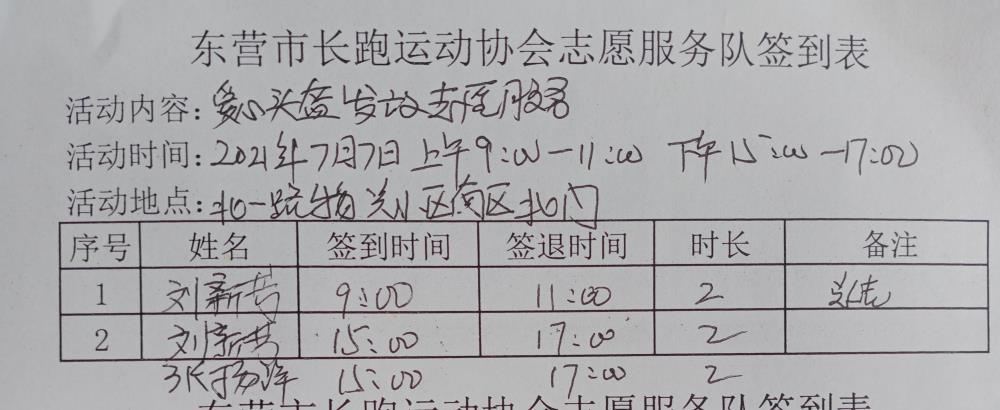 东营市长跑运动协会志愿服务队签到表
活动内容：爱心头盔发放志愿服务
活动时间：2021年7月7日上午9:00-11:00 下午15:00-17:00
活动地点：北一路 小区南区北门
序号 姓名 签到时间 签退时间 时长 备注
1 刘新芳 9:00 11:00 2
2 刘新芳 15:00 17:00 2
张扬洋 15:00 17:00 2
东营市长跑运动协会志愿服务队签到表